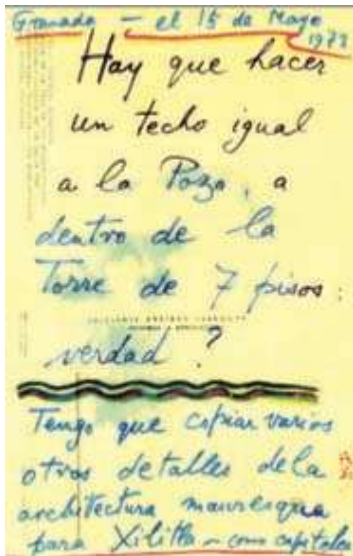 Granada — el 15 de Mayo
1973
Hay que hacer
un techo igual
a la Pozo, a
dentro de la
Torre de 7 pisos:
verdad?
Tengo que copiar varios
otros detalles dela
architectura mauresqua
para Xilitla — como capitales